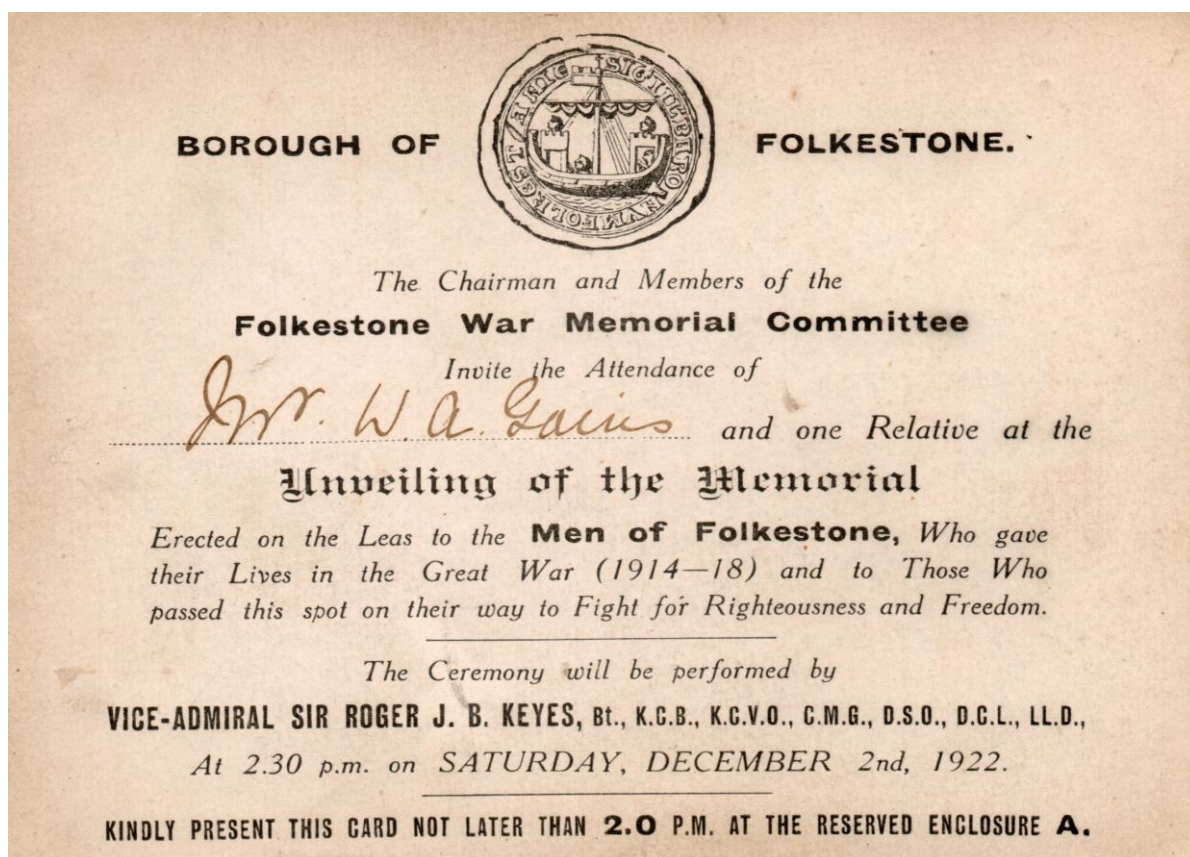 BOROUGH OF FOLKESTONE.
The Chairman and Members of the
Folkestone War Memorial Committee
Invite the Attendance of
Mr. W. A. Gains and one Relative at the
Unveiling of the Memorial
Erected on the Leas to the Men of Folkestone, Who gave
their Lives in the Great War (1914—18) and to Those Who
passed this spot on their way to Fight for Righteousness and Freedom.
The Ceremony will be performed by
VICE-ADMIRAL SIR ROGER J. B. KEYES, Bt., K.C.B., K.C.V.O., C.M.G., D.S.O., D.C.L., LL.D.,
At 2.30 p.m. on SATURDAY, DECEMBER 2nd, 1922.
KINDLY PRESENT THIS CARD NOT LATER THAN 2.0 P.M. AT THE RESERVED ENCLOSURE A.